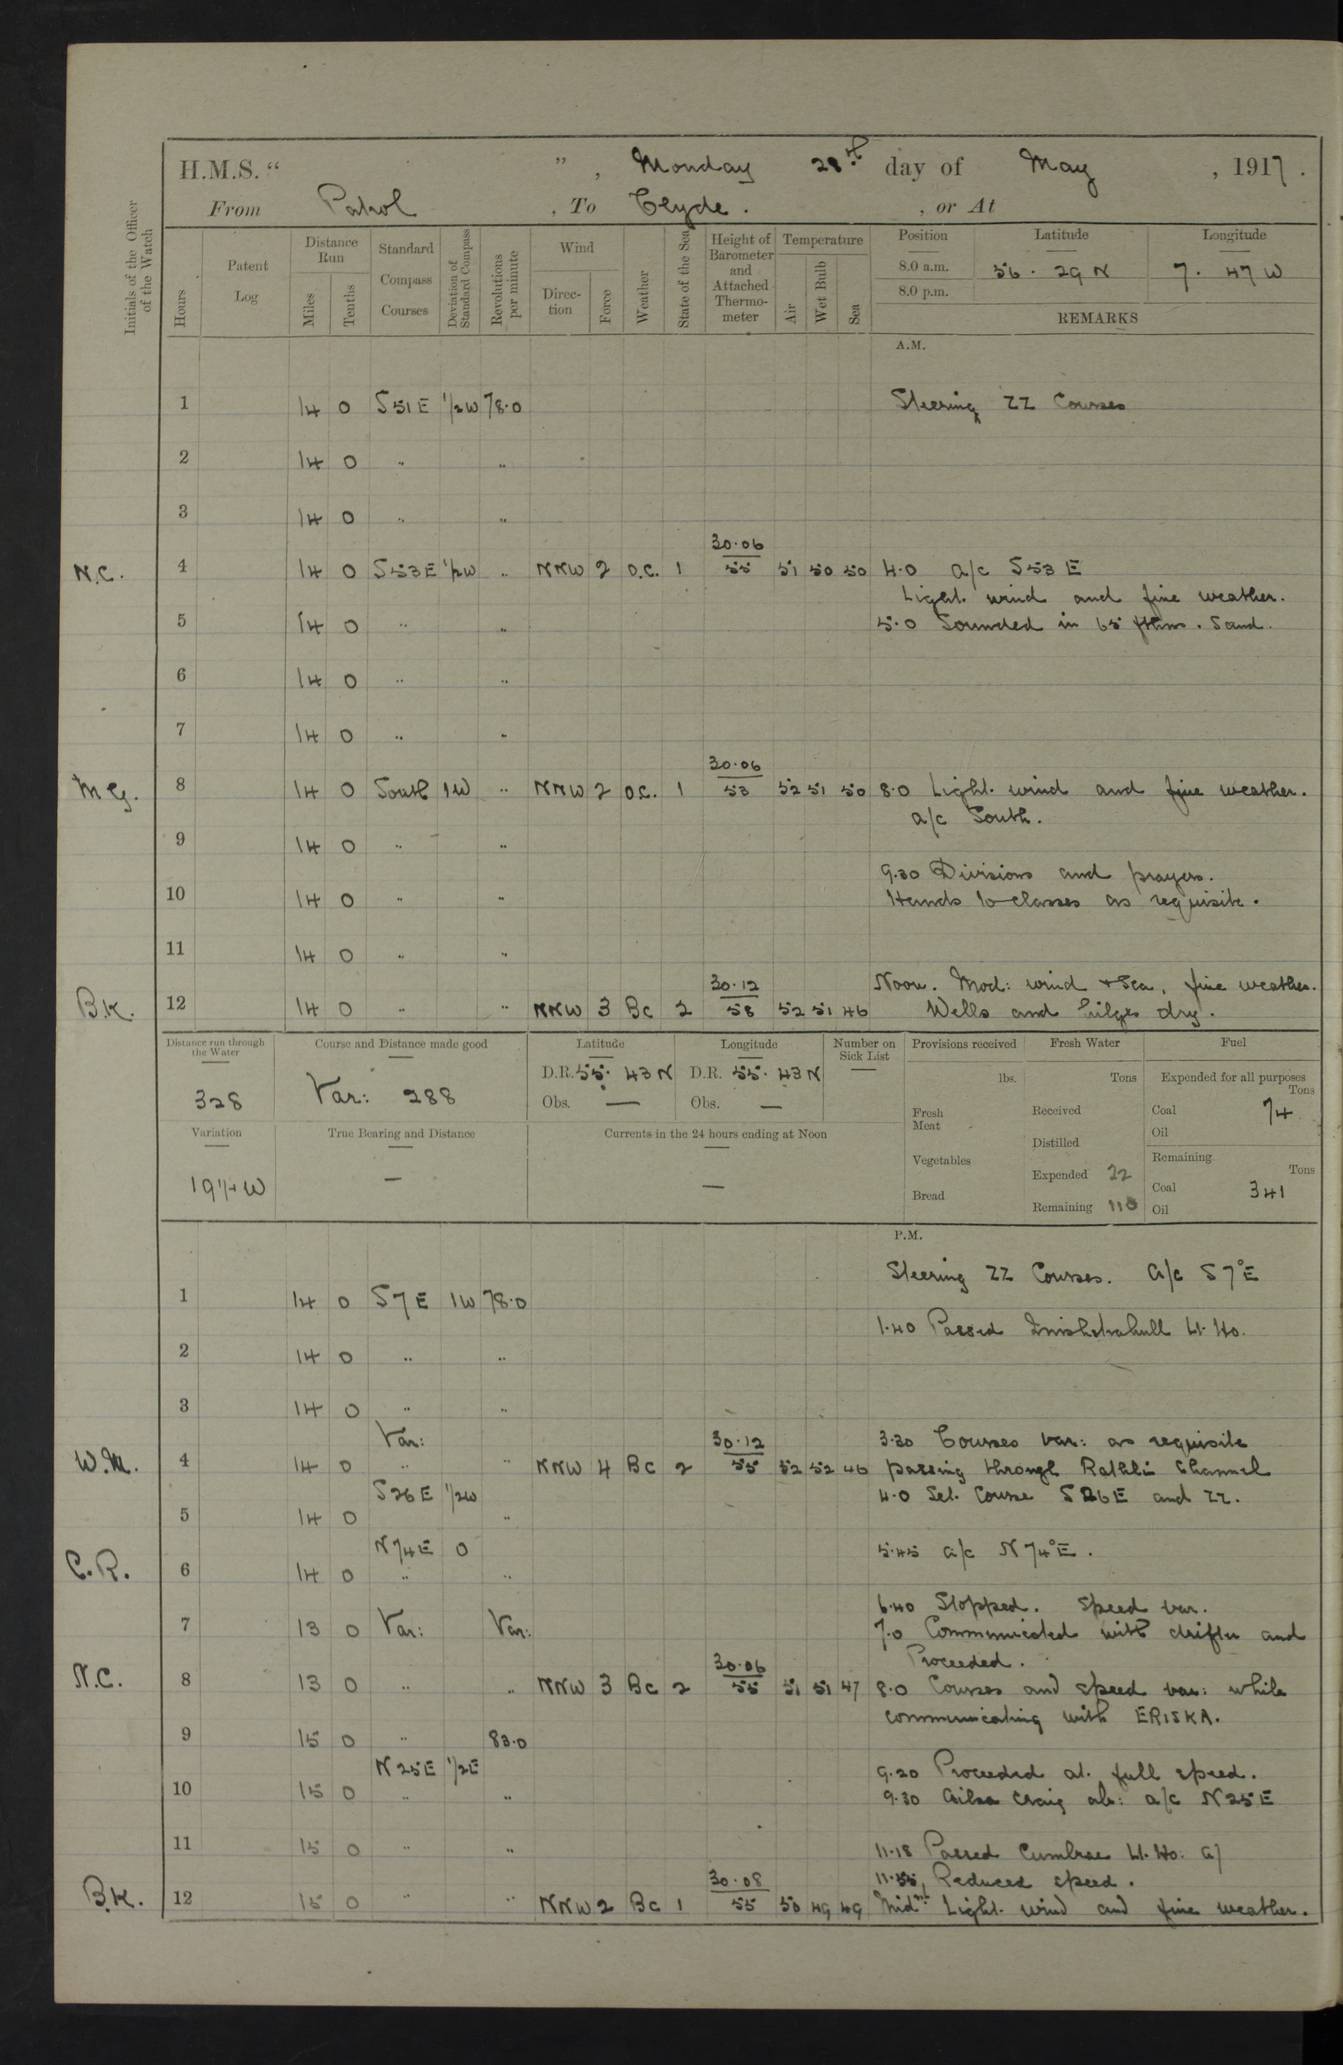 H.M.S. “ ”, Monday 28th day of May, 1917.
From Patrol, To Clyde. , or At
Initials of the Officer of the Watch
Hours
Patent Log
Distance Run
Miles
Tenths
Standard Compass Courses
Deviation of Standard Compass
Revolutions per minute
Wind
Direction
Force
Weather
State of the Sea
Height of Barometer and Attached Thermometer
Temperature
Air
Wet Bulb
Sea
Position Latitude Longitude
8.0 a.m. 56. 29 N 7. 47 W
8.0 p.m.
REMARKS
A.M.
1 14 0 S51E 1/2W 78.0 Steering ZZ Courses
2 14 0 " "
3 14 0 " "
30.06
N.C. 4 14 0 S53E 1/2W " NNW 2 O.C. 1 55 51 50 50 4.0 a/c S53E
Light wind and fine weather.
5 14 0 " " 5.0 Sounded in 65 fthms. Sand.
6 14 0 " "
7 14 0 " "
30.06
M G. 8 14 0 South 1W " NNW 2 O.C. 1 53 52 51 50 8.0 Light wind and fine weather.
a/c South.
9 14 0 " "
9.30 Divisions and prayers.
10 14 0 " " Hands to classes as requisite.
11 14 0 " "
30.12 Noon. Mod: wind + Sea, fine weather.
B.K. 12 14 0 " " NNW 3 Bc 2 58 52 51 46 Wells and bilges dry.
Distance run through the Water
328
Course and Distance made good
Var: 288
Latitude
D.R. 55. 43 N
Obs. —
Longitude
D.R. 55. 43 N
Obs. —
Number on Sick List
Provisions received
lbs.
Fresh Meat
Vegetables
Bread
Fresh Water
Tons
Received
Distilled
Expended 22
Remaining 110
Fuel
Expended for all purposes
Tons
Coal 74
Oil
Remaining
Tons
Coal 341
Oil
Variation
19 1/4 W
True Bearing and Distance
—
Currents in the 24 hours ending at Noon
—
P.M.
Steering ZZ Courses. a/c S7°E
1 14 0 S7E 1W 78.0
1.40 Passed Inishtrahull Lt. Ho.
2 14 0 " "
3 14 0 " "
Var: 30.12 3.30 Courses var: as requisite
W.M. 4 14 0 " " NNW 4 Bc 2 55 52 52 46 passing through Rathlin Channel
S26E 1/2W 4.0 Set Course S26E and ZZ.
5 14 0 "
N74E 0 5.45 a/c N74°E.
C.R. 6 14 0 " "
6.40 Stopped. Speed var.
7 13 0 Var: Var: 7.0 Communicated with drifter and
30.06 Proceeded.
N.C. 8 13 0 " " NNW 3 Bc 2 55 51 51 47 8.0 Courses and speed var: while
communicating with ERISKA.
9 15 0 " 83.0
N25E 1/2E 9.20 Proceeded at full speed.
10 15 0 " " 9.30 Ailsa Craig ab: a/c N25E
11 15 0 " " 11.18 Passed Cumbrae Lt. Ho.
30.08 11.55 Reduced speed.
B.K. 12 15 0 " " NNW 2 Bc 1 55 50 49 49 Midnt Light wind and fine weather.